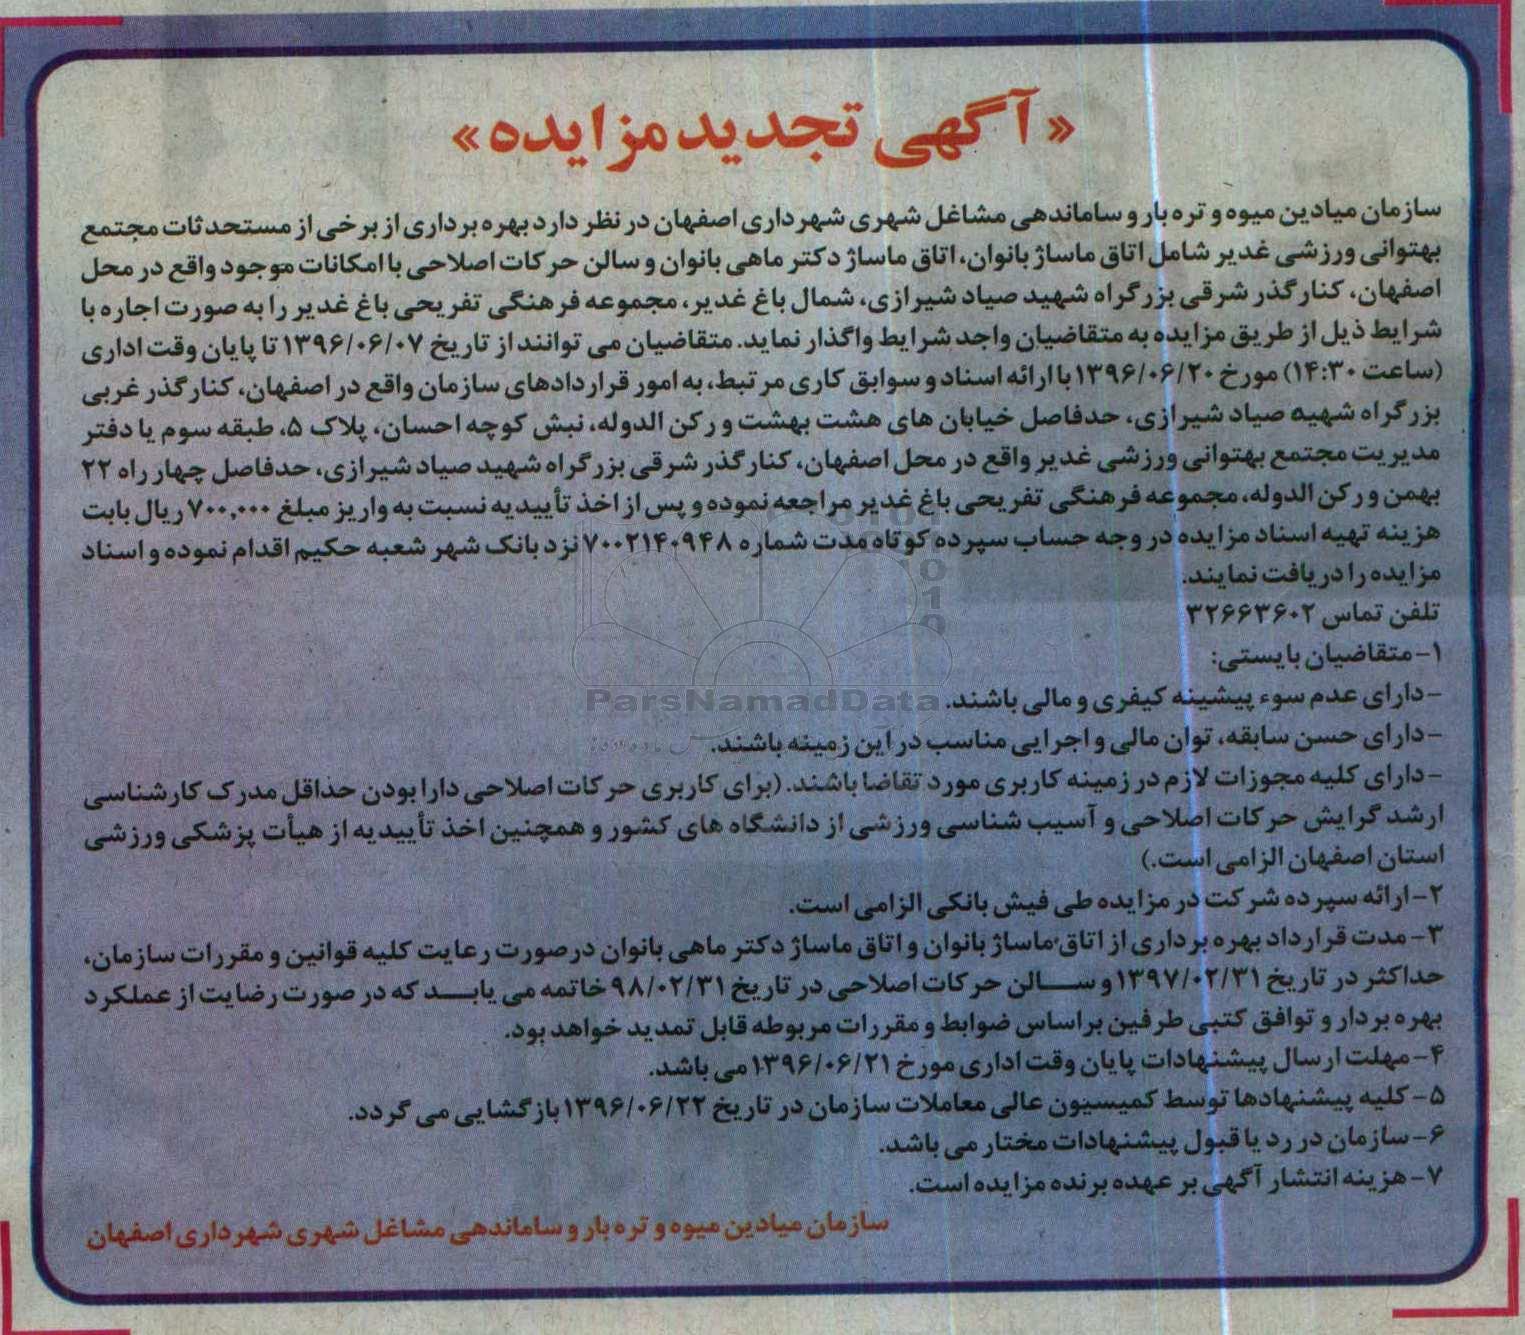 «آگهی تجدید مزایده»
سازمان میادین میوه و تره بار و ساماندهی مشاغل شهری شهرداری اصفهان در نظر دارد بهره برداری از برخی از مستحدثات مجتمع
بهتوانی ورزشی غدیر شامل اتاق ماساژ بانوان، اتاق ماساژ دکتر ماهی بانوان و سالن حرکات اصلاحی با امکانات موجود واقع در محل
اصفهان، کنار گذر شرقی بزرگراه شهید صیاد شیرازی، شمال باغ غدیر، مجموعه فرهنگی تفریحی باغ غدیر را به صورت اجاره با
شرایط ذیل از طریق مزایده به متقاضیان واجد شرایط واگذار نماید. متقاضیان می توانند از تاریخ ۱۳۹۶/۰۶/۰۷ تا پایان وقت اداری
(ساعت ۱۴:۳۰) مورخ ۱۳۹۶/۰۶/۲۰ با ارائه اسناد و سوابق کاری مرتبط، به امور قراردادهای سازمان واقع در اصفهان، کنار گذر غربی
بزرگراه شهید صیاد شیرازی، حدفاصل خیابان های هشت بهشت و رکن الدوله، نبش کوچه احسان، پلاک ۵، طبقه سوم یا دفتر
مدیریت مجتمع بهتوانی ورزشی غدیر واقع در محل اصفهان، کنار گذر شرقی بزرگراه شهید صیاد شیرازی، حدفاصل چهار راه ۲۲
بهمن و رکن الدوله، مجموعه فرهنگی تفریحی باغ غدیر مراجعه نموده و پس از اخذ تأییدیه نسبت به واریز مبلغ ۷۰۰,۰۰۰ ریال بابت
هزینه تهیه اسناد مزایده در وجه حساب سپرده کوتاه مدت شماره ۷۰۰۲۱۴۰۹۴۸ نزد بانک شهر شعبه حکیم اقدام نموده و اسناد
مزایده را دریافت نمایند.
تلفن تماس ۳۲۶۶۳۶۰۲
۱- متقاضیان بایستی:
- دارای عدم سوء پیشینه کیفری و مالی باشند.
ParsNamadData
- دارای حسن سابقه، توان مالی و اجرایی مناسب در این زمینه باشند.
- دارای کلیه مجوزات لازم در زمینه کاربری مورد تقاضا باشند. (برای کاربری حرکات اصلاحی دارا بودن حداقل مدرک کارشناسی
ارشد گرایش حرکات اصلاحی و آسیب شناسی ورزشی از دانشگاه های کشور و همچنین اخذ تأییدیه از هیأت پزشکی ورزشی
استان اصفهان الزامی است.)
۲- ارائه سپرده شرکت در مزایده طی فیش بانکی الزامی است.
۳- مدت قرارداد بهره برداری از اتاق ماساژ بانوان و اتاق ماساژ دکتر ماهی بانوان درصورت رعایت کلیه قوانین و مقررات سازمان،
حداکثر در تاریخ ۱۳۹۷/۰۲/۳۱ و ســـالن حرکات اصلاحی در تاریخ ۹۸/۰۲/۳۱ خاتمه می یابـــد که در صورت رضایت از عملکرد
بهره بردار و توافق کتبی طرفین براساس ضوابط و مقررات مربوطه قابل تمدید خواهد بود.
۴- مهلت ارسال پیشنهادات پایان وقت اداری مورخ ۱۳۹۶/۰۶/۲۱ می باشد.
۵- کلیه پیشنهادها توسط کمیسیون عالی معاملات سازمان در تاریخ ۱۳۹۶/۰۶/۲۲ بازگشایی می گردد.
۶- سازمان در رد یا قبول پیشنهادات مختار می باشد.
۷- هزینه انتشار آگهی بر عهده برنده مزایده است.
سازمان میادین میوه و تره بار و ساماندهی مشاغل شهری شهرداری اصفهان